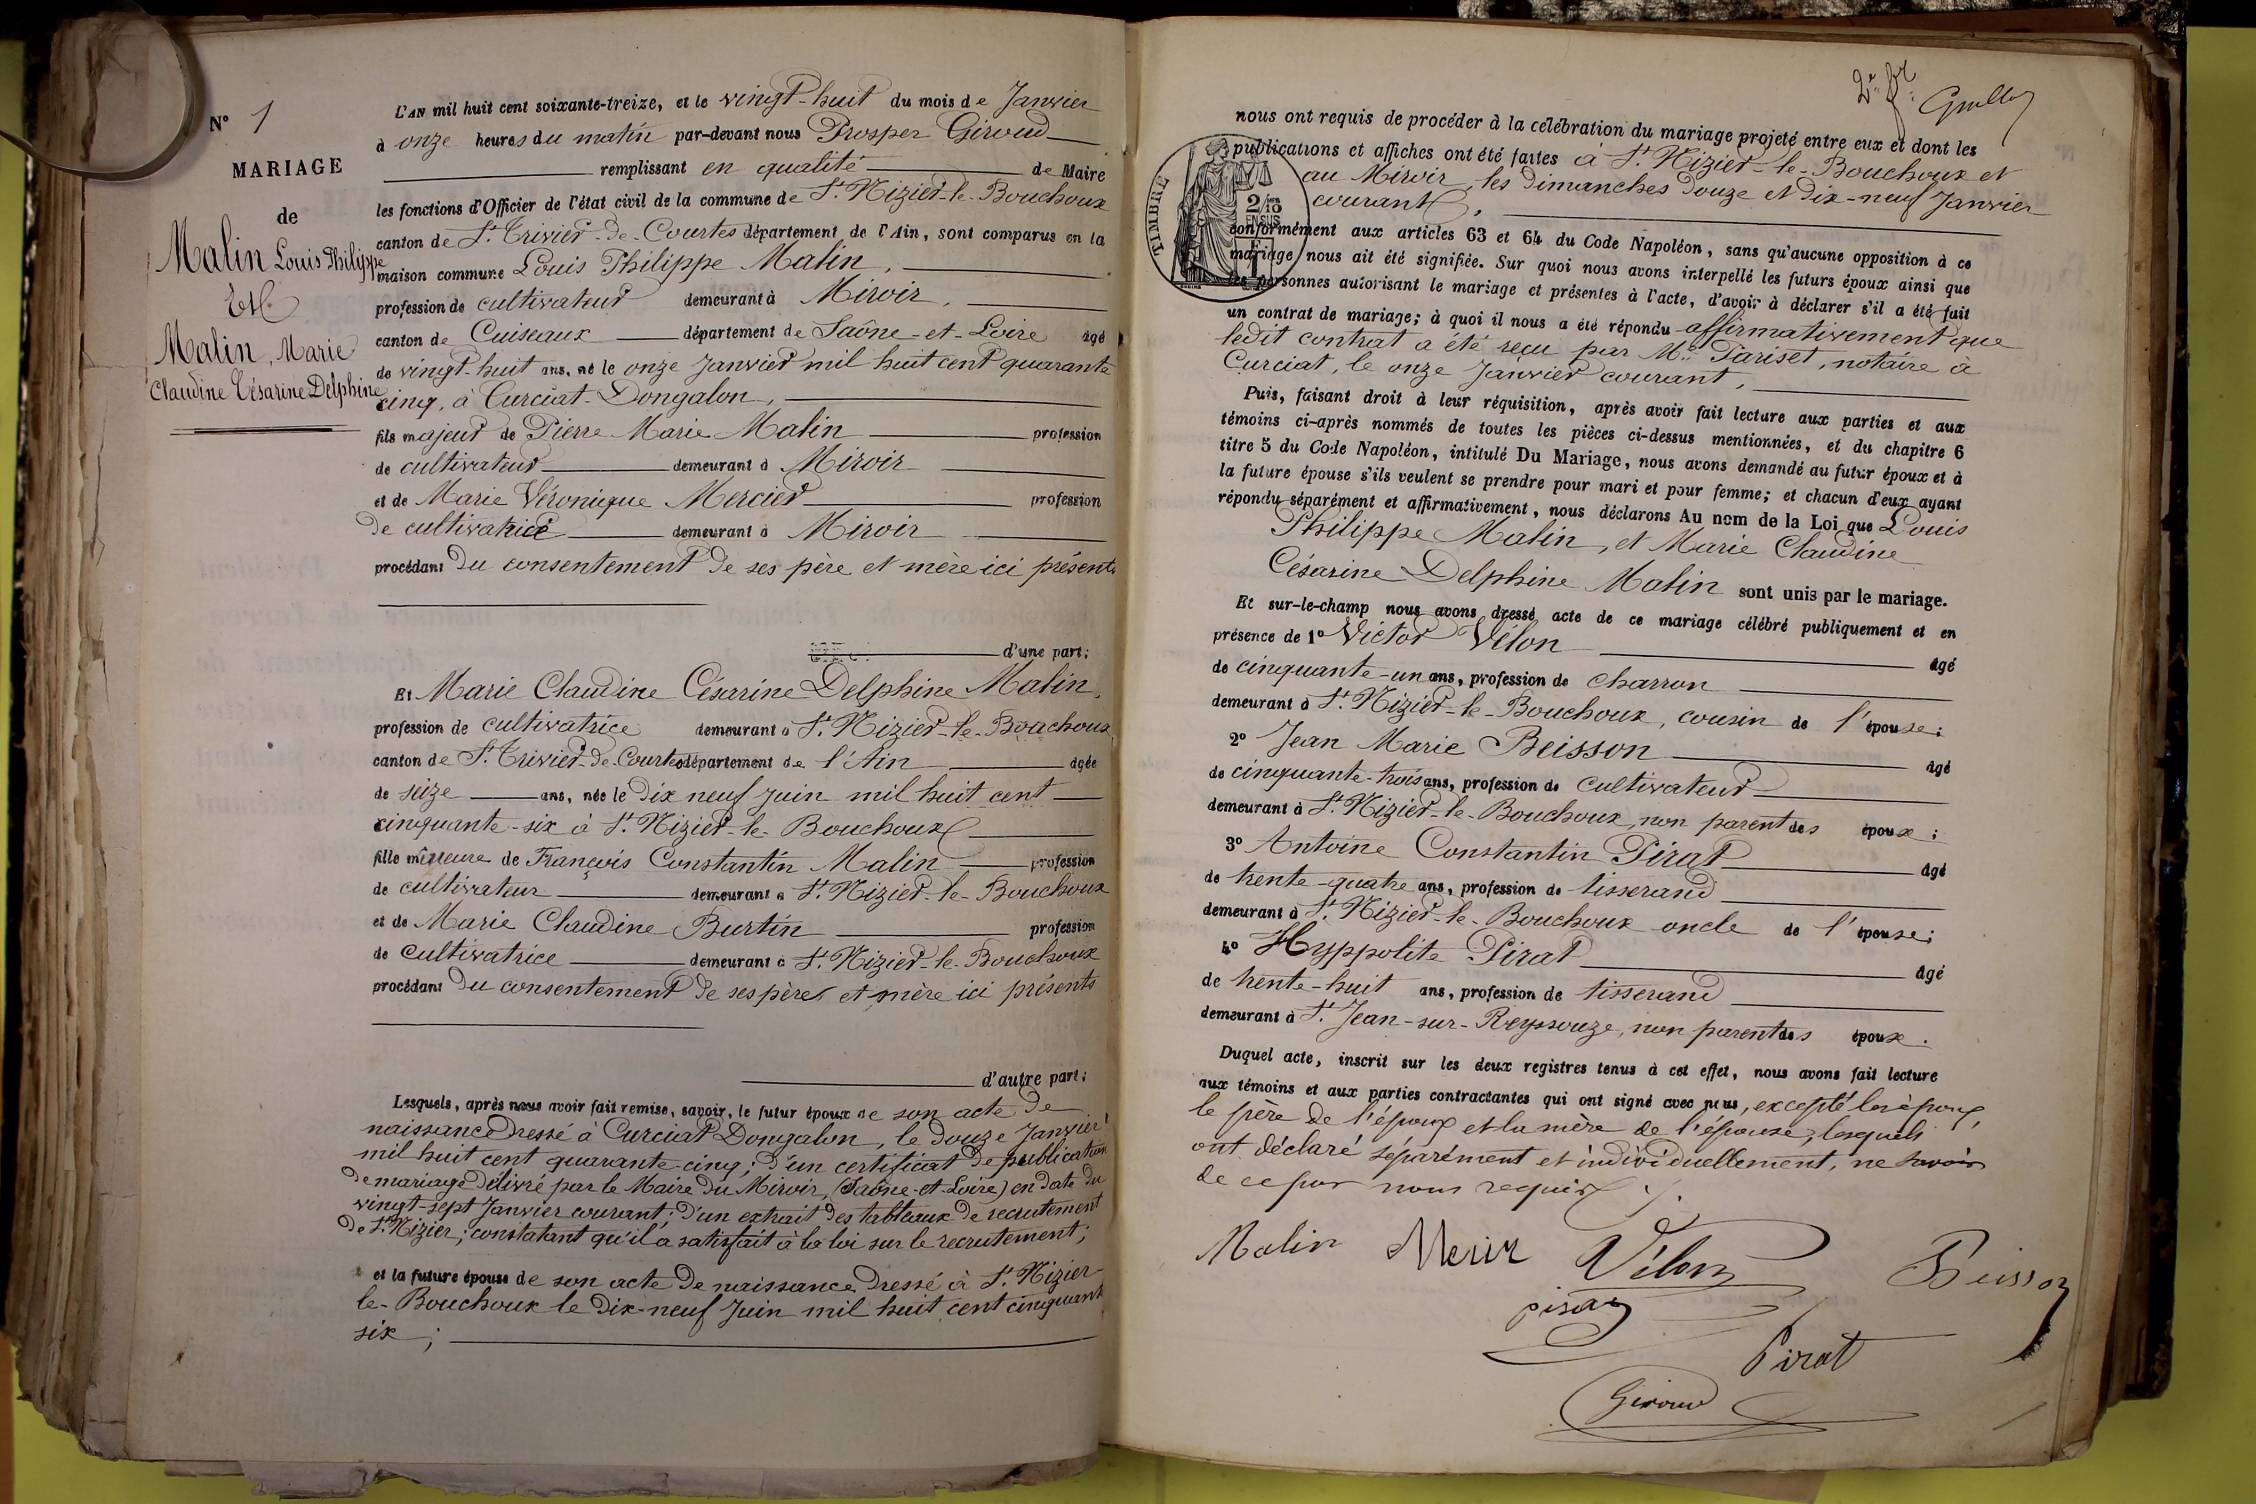 N° 1
MARIAGE
de
Malin Louis Philippe
Et
Malin, Marie
Claudine Césarine Delphine
L'AN mil huit cent soixante-treize, et le vingt-huit du mois de Janvier
à onze heures du matin par-devant nous Prosper Giroud
remplissant en qualité de Maire
les fonctions d'Officier de l'état civil de la commune de St. Nizier-le-Bouchoux
canton de St. Trivier-de-Courtes département de l'Ain, sont comparus en la
maison commune Louis Philippe Malin,
profession de cultivateur demeurant à Miroir,
canton de Cuiseaux département de Saône-et-Loire âgé
de vingt-huit ans, né le onze Janvier mil huit cent quarante
cinq, à Curciat-Dongalon,
fils majeur de Pierre Marie Malin profession
de cultivateur demeurant à Miroir
et de Marie Véronique Mercier profession
de cultivatrice demeurant à Miroir
procédant du consentement de ses père et mère ici présents
d'une part;
Et Marie Claudine Césarine Delphine Malin,
profession de cultivatrice demeurant à St. Nizier-le-Bouchoux
canton de St. Trivier-de-Courtes département de l'Ain âgée
de seize ans, née le dix neuf Juin mil huit cent
cinquante-six à St. Nizier-le-Bouchoux
fille mineure de François Constantin Malin profession
de cultivateur demeurant à St. Nizier-le-Bouchoux
et de Marie Claudine Burtin profession
de cultivatrice demeurant à St. Nizier-le-Bouchoux
procédant du consentement de ses père et mère ici présents
d'autre part;
Lesquels, après nous avoir fait remise, savoir, le futur époux de son acte de
naissance dressé à Curciat Dongalon, le douze Janvier
mil huit cent quarante-cinq; d'un certificat de publication
de mariage délivré par le Maire du Miroir, (Saône-et-Loire) en date du
vingt-sept Janvier courant; d'un extrait des tableaux de recrutement
de St. Nizier; constatant qu'il a satisfait à la loi sur le recrutement;
et la future épouse de son acte de naissance dressé à St. Nizier
le-Bouchoux le dix-neuf Juin mil huit cent cinquante
six;
nous ont requis de procéder à la célébration du mariage projeté entre eux et dont les
publications et affiches ont été faites à St. Nizier-le-Bouchoux et
au Miroir, les dimanches douze et dix-neuf Janvier
courant,
TIMBRE
2/10
EN SUS
conformément aux articles 63 et 64 du Code Napoléon, sans qu'aucune opposition à ce
mariage nous ait été signifiée. Sur quoi nous avons interpellé les futurs époux ainsi que
les personnes autorisant le mariage et présentes à l'acte, d'avoir à déclarer s'il a été fait
un contrat de mariage; à quoi il nous a été répondu affirmativement que
ledit contrat a été reçu par Me. Pariset, notaire à
Curciat, le onze Janvier courant,
Puis, faisant droit à leur réquisition, après avoir fait lecture aux parties et aux
témoins ci-après nommés de toutes les pièces ci-dessus mentionnées, et du chapitre 6
titre 5 du Code Napoléon, intitulé Du Mariage, nous avons demandé au futur époux et à
la future épouse s'ils veulent se prendre pour mari et pour femme; et chacun d'eux ayant
répondu séparément et affirmativement, nous déclarons Au nom de la Loi que Louis
Philippe Malin, et Marie Claudine
Césarine Delphine Malin sont unis par le mariage.
Et sur-le-champ nous avons dressé acte de ce mariage célébré publiquement et en
présence de 1° Victor Vélon âgé
de cinquante-un ans, profession de charron
demeurant à St. Nizier-le-Bouchoux, cousin de l'épouse;
2° Jean Marie Beisson âgé
de cinquante-trois ans, profession de cultivateur
demeurant à St. Nizier-le-Bouchoux, non parent des époux;
3° Antoine Constantin Pirat âgé
de trente-quatre ans, profession de tisserand
demeurant à St. Nizier-le-Bouchoux oncle de l'épouse;
4° Hyppolite Pirat âgé
de trente-huit ans, profession de tisserand
demeurant à St. Jean-sur-Reyssouze, non parent des époux.
Duquel acte, inscrit sur les deux registres tenus à cet effet, nous avons fait lecture
aux témoins et aux parties contractantes qui ont signé avec nous, excepté les époux,
le père de l'époux et la mère de l'épouse, lesquels
ont déclaré séparément et individuellement, ne savoir
de ce par nous requis.
Malin Vélon Beisson
Pirat
Giroud